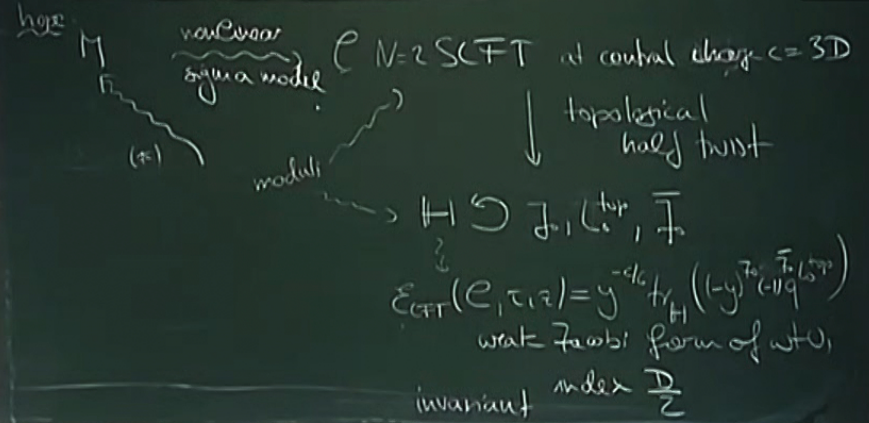 hope:
M nonlinear sigma model C N=2 SCFT at central charge c=3D
topological
half twist
(*)
moduli
H ↺ J₀, L₀^top, J̄₀
ε_CFT(C, τ, z) = y^{-c/6} tr_H((-y)^{J₀} (-1)^{J̄₀} q^{L₀^top})
weak Jacobi form of wt 0,
invariant index D/2